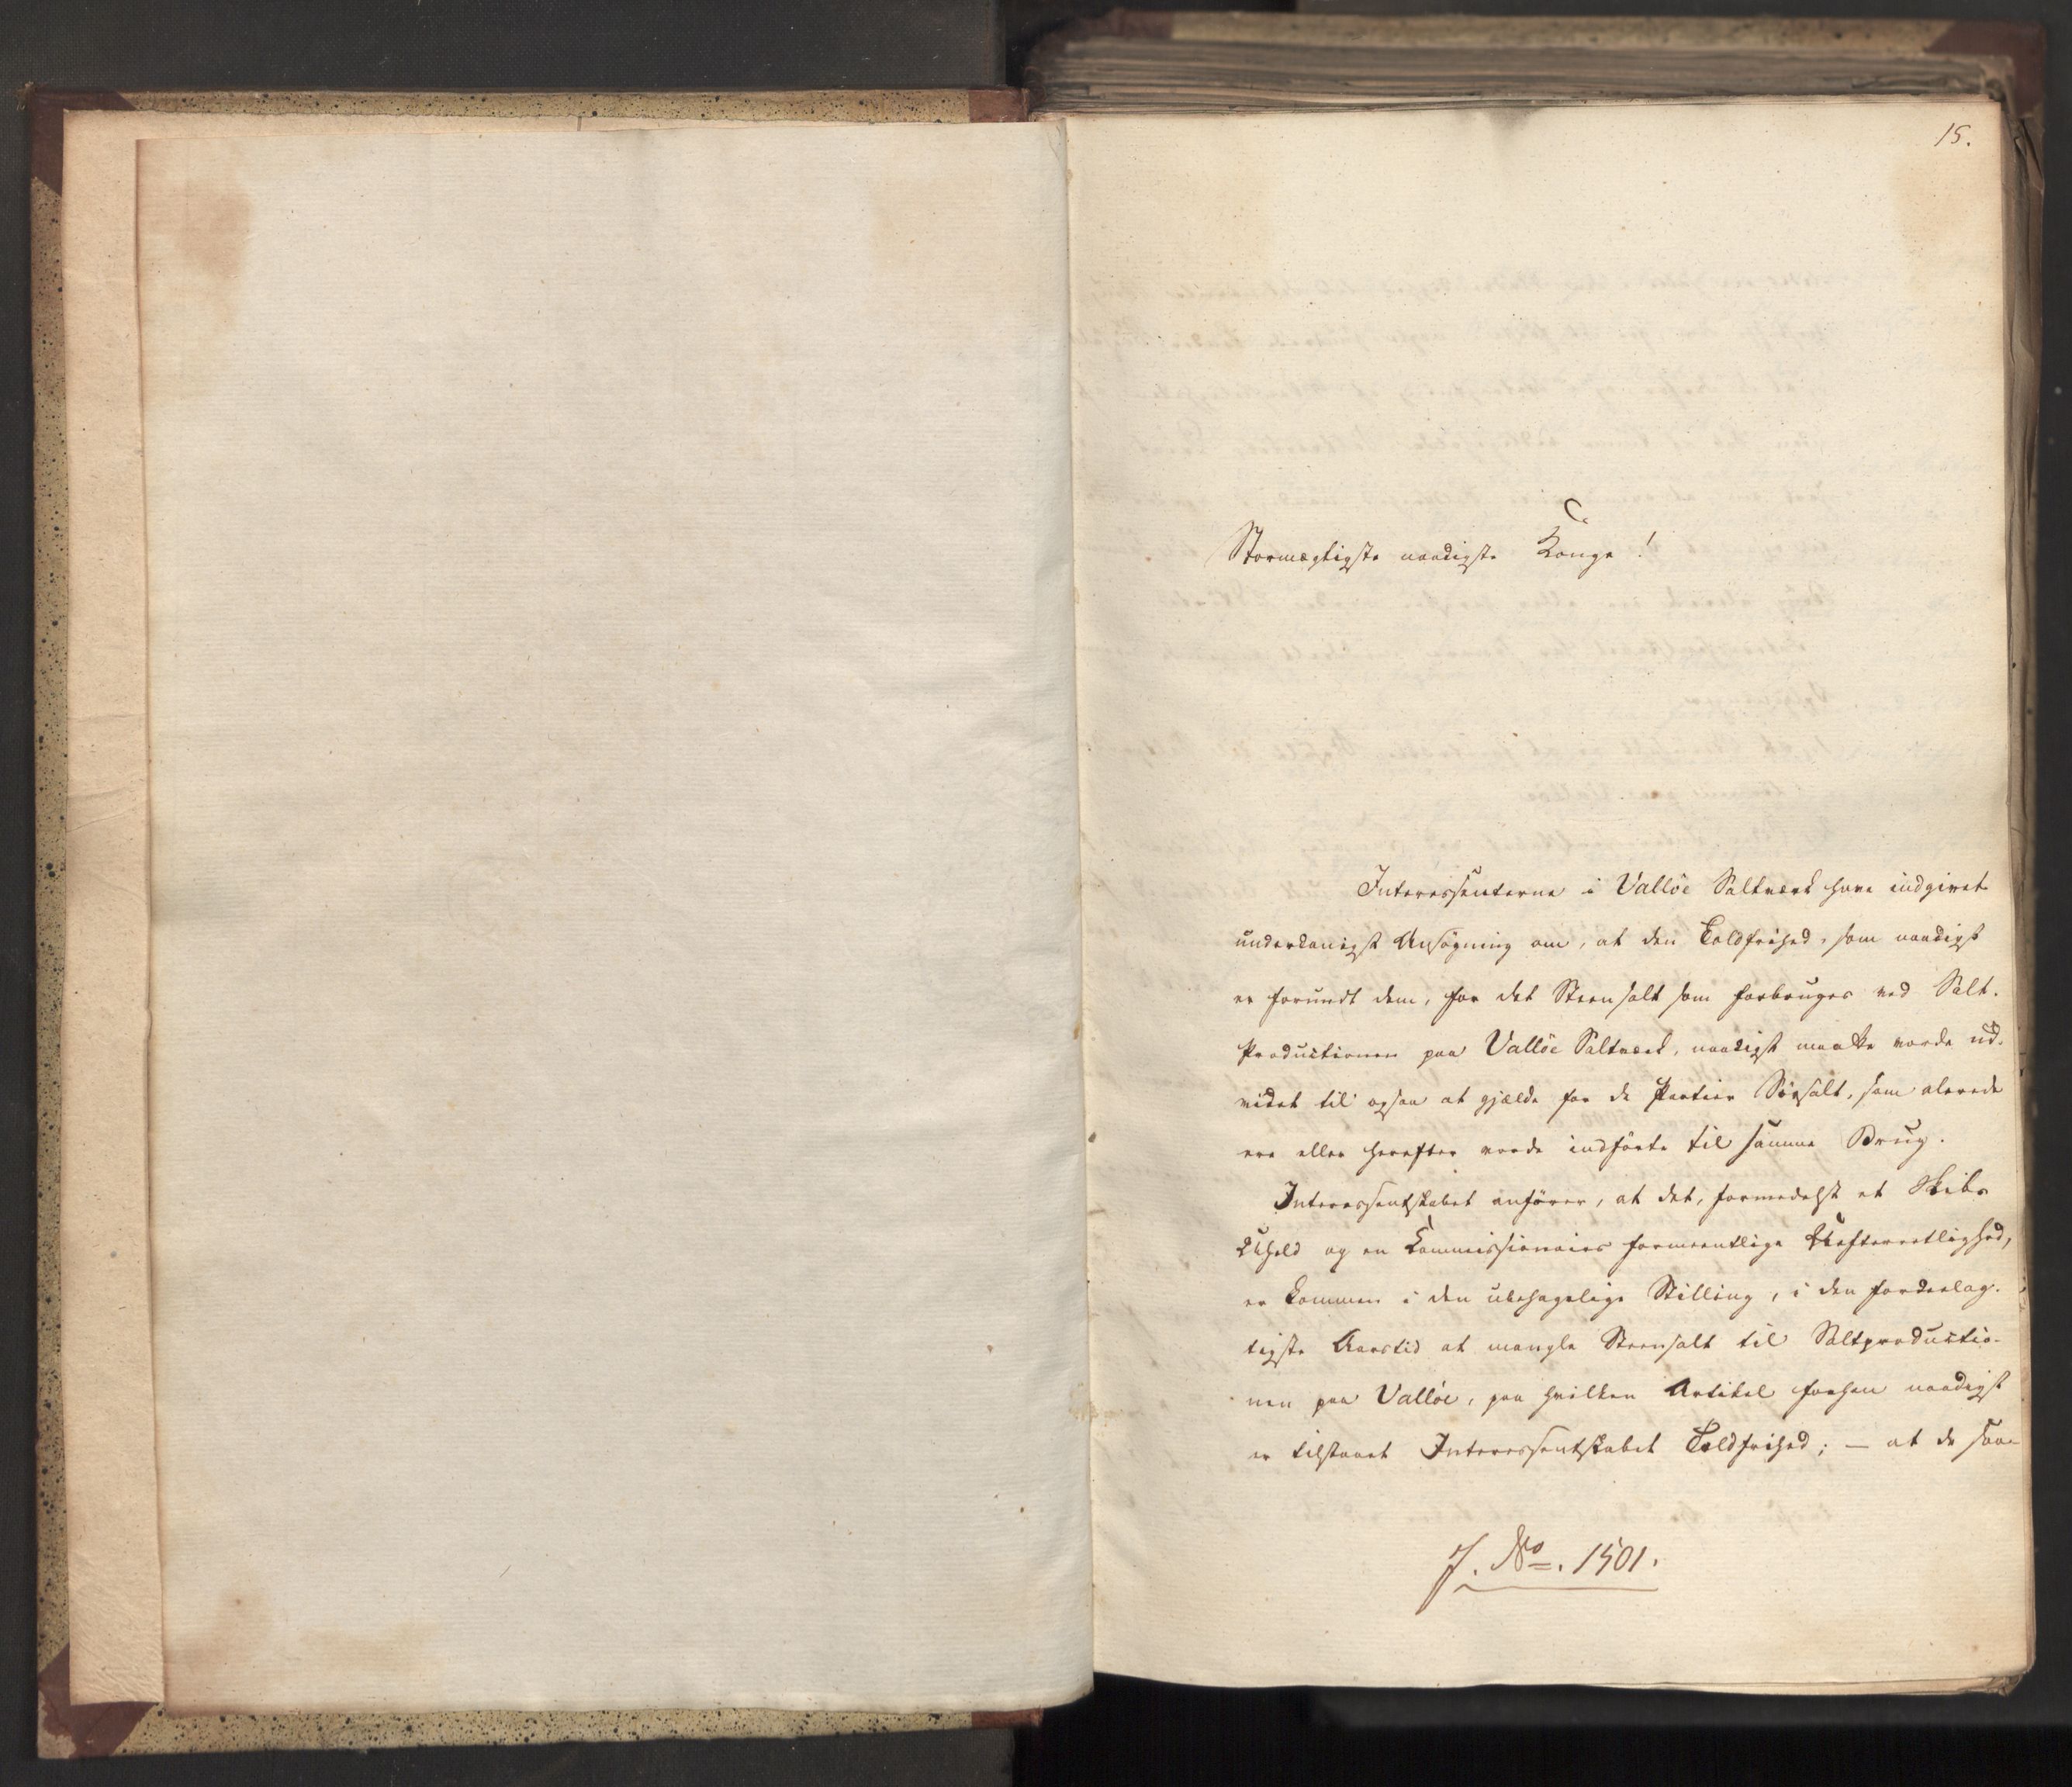 15.
Stormægtigste naadigste Konge!
Interessenterne i Valløe Saltværk have indgivet
underdanigst Ansøgning om, at den Toldfrihed, som naadigst
er forundt dem, for det Steensalt som forbruges ved Salt-
Productionen paa Valløe Saltværk, naadigst maatte vorde ud-
videt til ogsaa at gjælde for de Partier Søesalt, som alerede
ere eller herefter vorde indførte til samme Brug.
Interessentskabet anfører, at det, formedelst et Skibs
Uheld og en Kommissionairs formeentlige Uefterretlighed,
er kommen i den ubehagelige Stilling, i den fordeelag-
tigste Aarstid at mangle Steensalt til Saltproductio-
nen paa Valløe, paa hvilken Artikel forhen naadigst
er tilstaaet Interessentskabet Toldfrihed; — at de saa-
J. No. 1501.